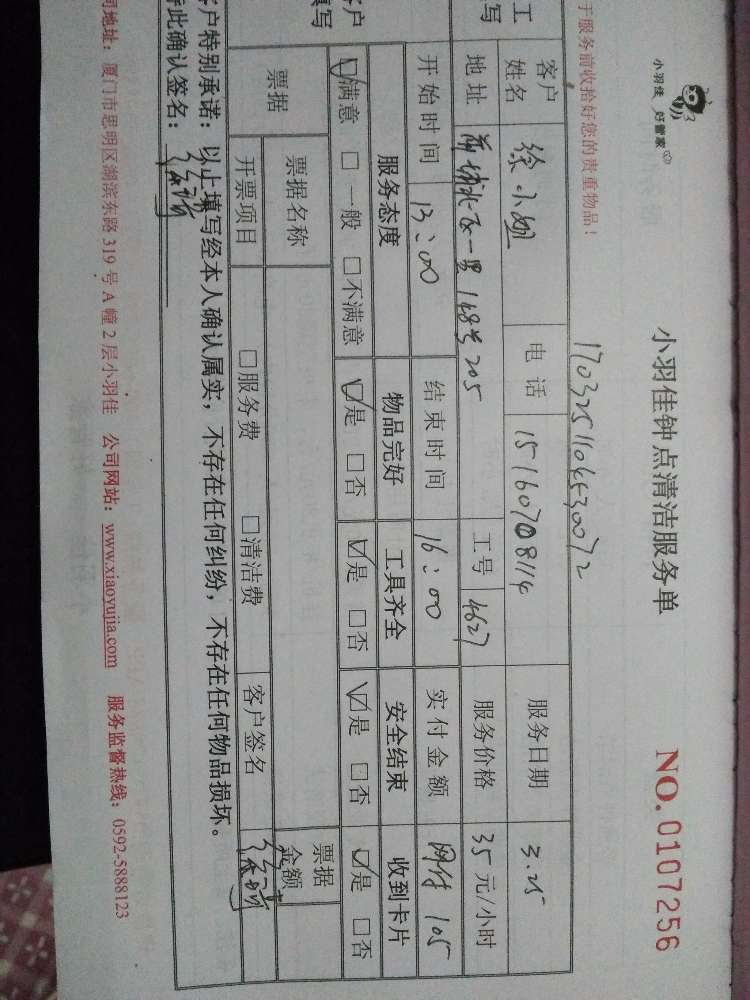 小羽佳 好管家
小羽佳钟点清洁服务单
NO. 0107256
于服务前收拾好您的贵重物品!
170325110453007 2
工
写
客户姓名 徐小姐 电话 15160708114 服务日期 3.25
地址 148号205 工号 4627 服务价格 35 元/小时
开始时间 13:00 结束时间 16:00 实付金额 网付 105
客户
填写
服务态度 物品完好 工具齐全 安全结束 收到卡片
☑满意 □一般 □不满意 ☑是 □否 ☑是 □否 ☑是 □否 ☑是 □否
票据 票据名称 票据金额
开票项目 □服务费 □清洁费 客户签名
客户特别承诺:以上填写经本人确认属实,不存在任何纠纷,不存在任何物品损坏。
特此确认签名:
司地址:厦门市思明区湖滨东路 319 号 A 幢 2 层小羽佳 公司网站:www.xiaoyujia.com 服务监督热线:0592-5888123